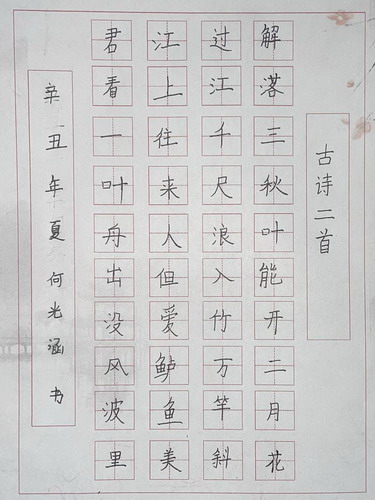 古诗二首
解落三秋叶能开二月花
过江千尺浪入竹万竿斜
江上往来人但爱鲈鱼美
君看一叶舟出没风波里
辛丑年夏何光涵书